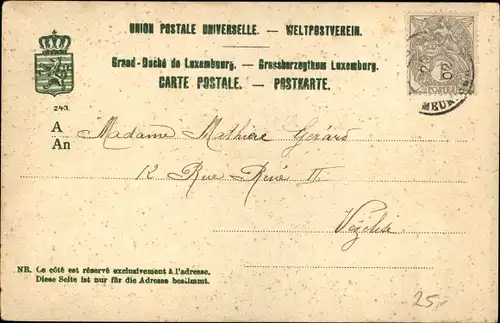 UNION POSTALE UNIVERSELLE. — WELTPOSTVEREIN.
Grand-Duché de Luxembourg. — Grossherzogthum Luxemburg.
CARTE POSTALE. — POSTKARTE.
243.
A
An
Madame Mathieu Gérard
12 Rue René II
Vézelise
02
MEUR
POSTES
NB. Ce côté est réservé exclusivement à l'adresse.
Diese Seite ist nur für die Adresse bestimmt.
25